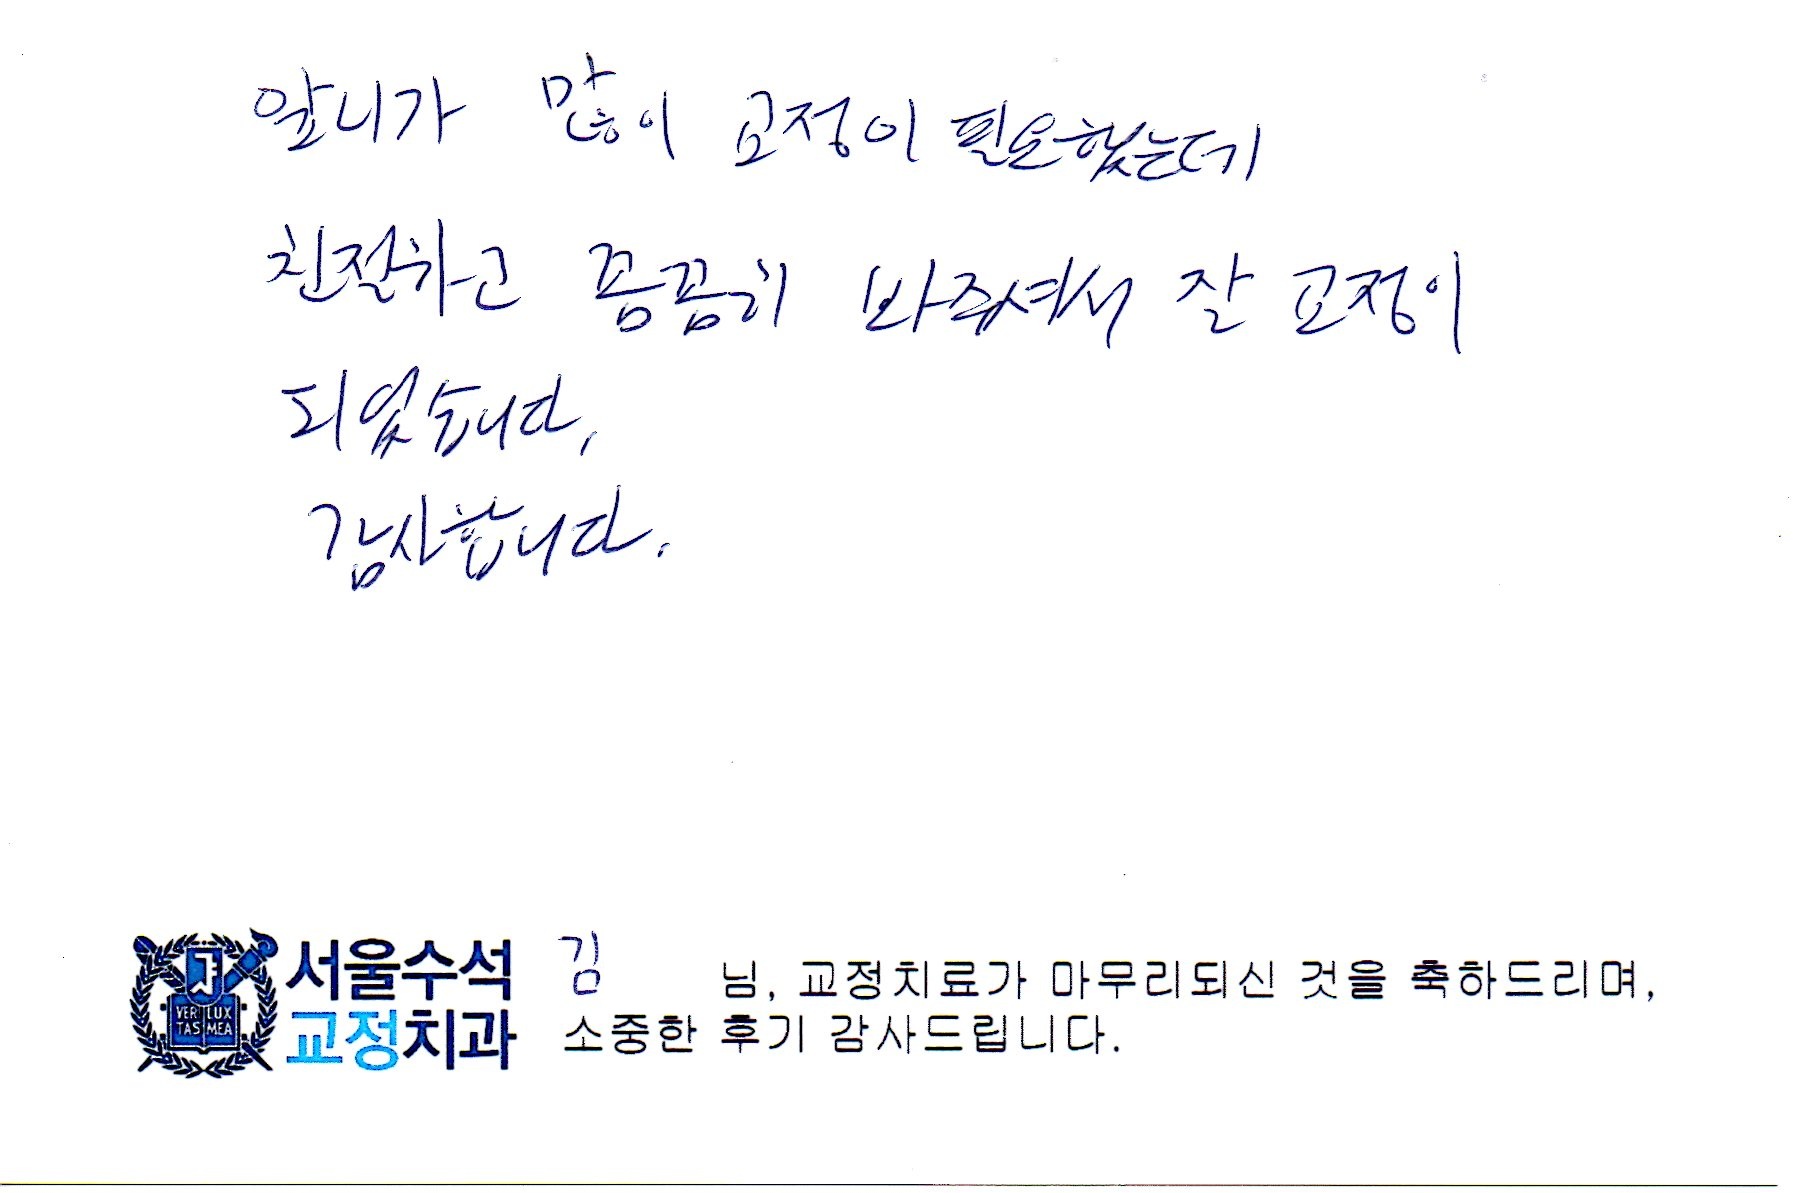 앞니가 많이 교정이 필요했는데
친절하고 꼼꼼히 봐주셔서 잘 교정이
되었습니다.
감사합니다.
서울수석
교정치과
VERI LUX
TAS MEA
김 님, 교정치료가 마무리되신 것을 축하드리며,
소중한 후기 감사드립니다.